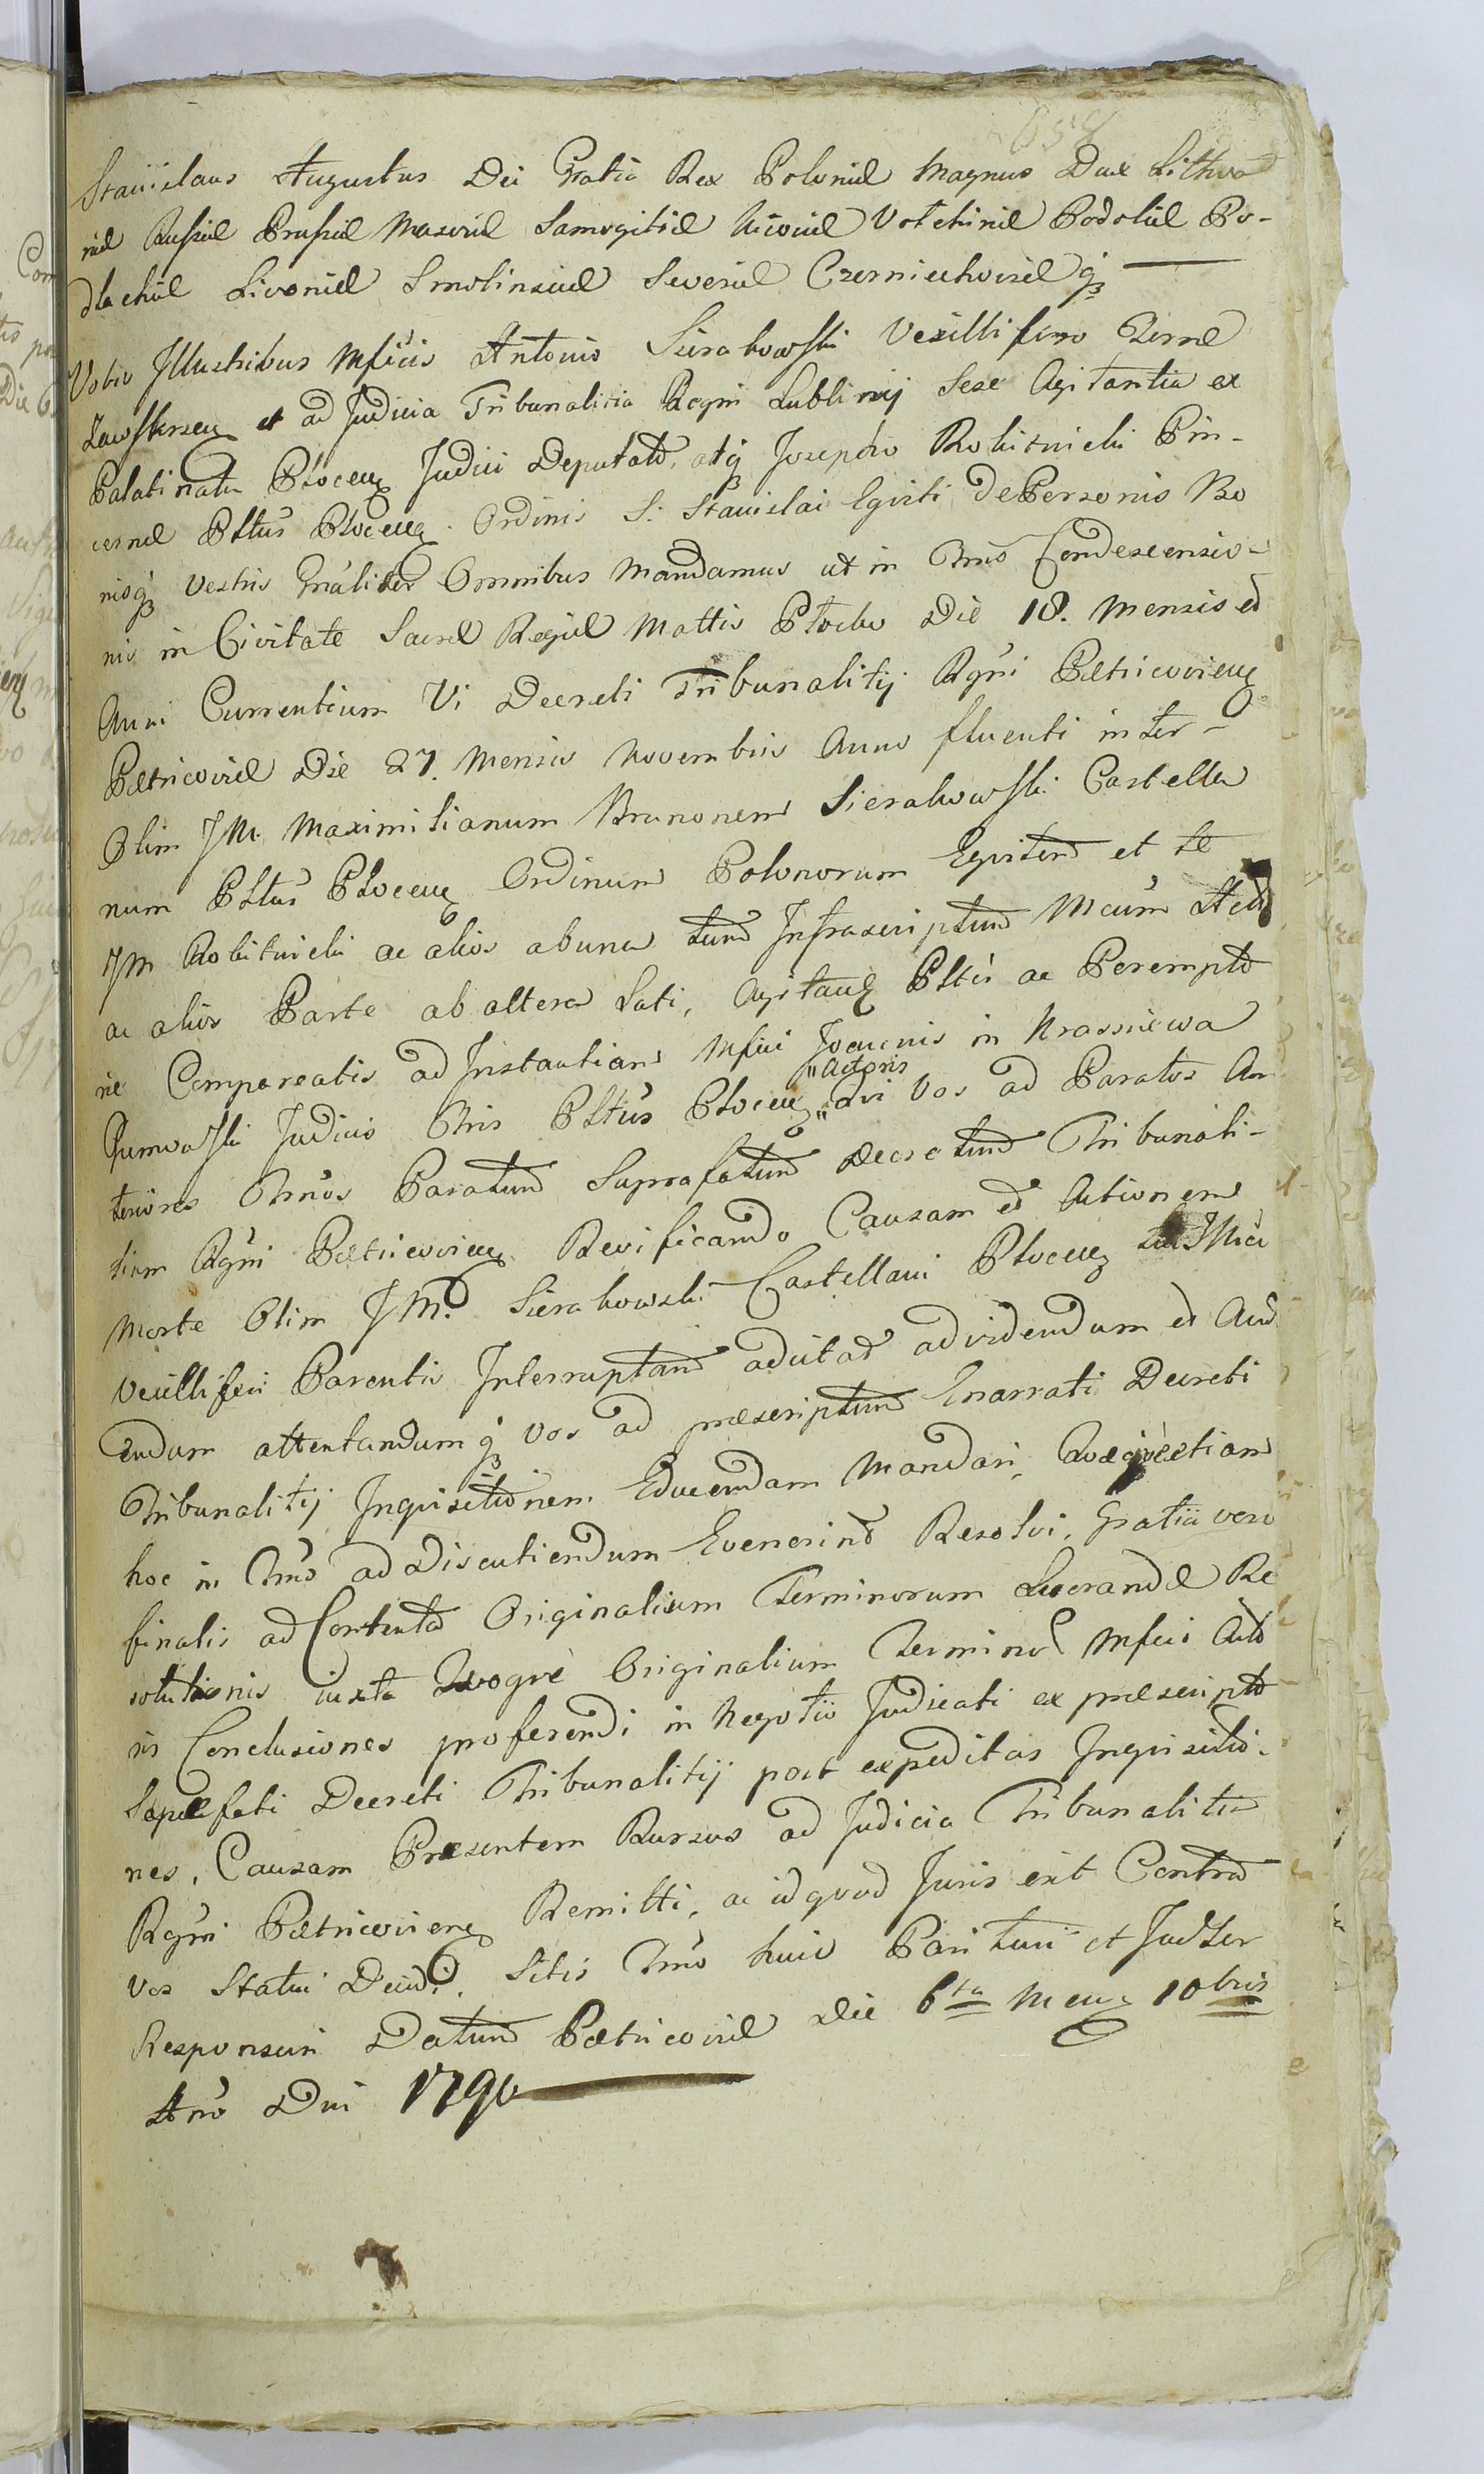 658
Stanislaus Augustus Dei Gratia Rex Poloniæ Magnus Dux Lithva
niæ Russiæ Prussiæ Masoviæ Samogitiæ Kioviæ Volchiniæ Podoliæ Po-
dlachiæ Livoniæ Smolinsciæ Severiæ Czerniechoviæ q3
Vobis Illustribus Mficis Antonio Sierakowski Vexillifero Terræ
Zawskrzen et ad Judicia Tribunalitia Regni Lublinij Sese Agitantia ex
Palatinatu Plocen Judici Deputato, atq3 Josepho Rokitnicki Pin-
cernæ Pltus Plocen. Ordinis S: Stanislai Eqviti de Personis Bo
nisq3 Vestris Gnaliter Omnibus Mandamus ut in Tmo Condescensio-
nis in Civitate Sacræ Regiæ Mattis Płocko Die 18. Mensis et
Anni Currentium Vi Decreti Tribunalitij Rgni Petricovien
Petricoviæ Die 27. Mensis Novembris Anno fluenti inter
Olim JM. Maximilianum Brunonem Sierakowski Castella
num Pltus Plocen Ordinum Polonorum Eqvitem et te
JM Rokitnicki ac alios ab una tum Infrascriptum Mcum Act
ac alios Parte ab altera Lati, Agitan Pltis ac Perempto
rie Compareatis ad Instantiam Mfici Joannis in Krasniewa
"Actoris
Gumowski Judicis Tris Pltus Plocen " Qvi Vos ad Paratos An
teriores Tmnos Paratum Suprafatum Decretum Tribunali-
tium Rgni Petricovien Revificando Causam et Actionem
Morte Olim JM. Sierakowski Castellani Plocen tui JMci
Vexilliferi Parentis Interruptam adcitat ad videndum et Aud
iendum attentandumq3 Vos ad præscriptum Enarrati Decreti
Tribunalitij Inqvisitionem Educendam Mandari, Qvæqve etiam
hoc in Tmo ad Discutiendum Evenerint Resolvi, Gratia vero
finalis ad Contenta Originalium Terminorum Lucrandæ Re
solutionis iuxta Qvoqve Originalium Termino Mfici Acto
ris Conclusiones proferendi in Negotio Judicati ex præscripto
Sæpefati Decreti Tribunalitij post expeditas Inqvisitio-
nes, Causam Præsentem Rursus ad Judicia Tribunalitia
Rgni Petricovien Remitti, ac id qvod Juris erit Contra
Vos Statui Decid. Sitis Tmo huic Parituri et Judter
Responsuri Datum Petricoviæ Die 6ta Men 10bris
Anno Dni 1790